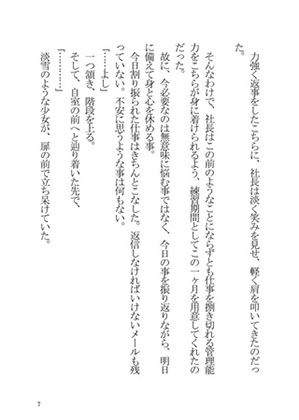 力強く返事をしたこちらに、社長は淡く笑みを見せ、軽く肩を叩いてきたのだっ
た。
　そんなわけで、社長はこの前のようなことにならずとも仕事を捌き切れる管理能
力をこちらが身に着けられるよう、練習期間としてこの一ヶ月を用意してくれたの
だった。
　故に、今必要なのは無意味に悩む事ではなく、今日の事を振り返りながら、明日
に備えて身と心を休める事。
　今日割り振られた仕事はきちんとこなした。返信しなければいけないメールも残
っていない。不安に思うような事は何もない。
「……よし」
　一つ頷き、階段を上る。
　そして、自室の前へと辿り着いた先で、
「…………」
　淡雪のような少女が、扉の前で立ち呆けていた。
7